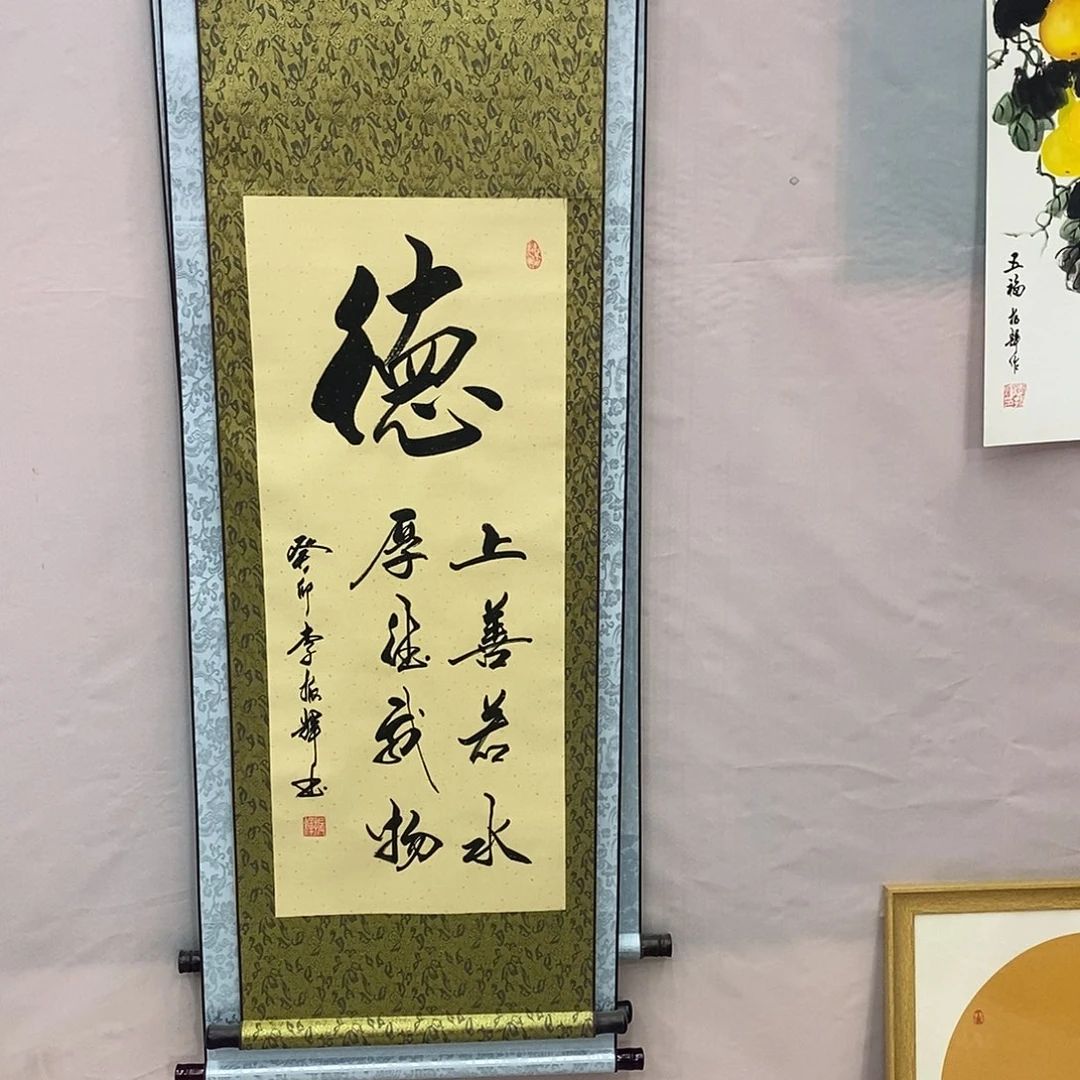 德
上善若水
厚德载物
癸卯李振辉书
五福
振辉作